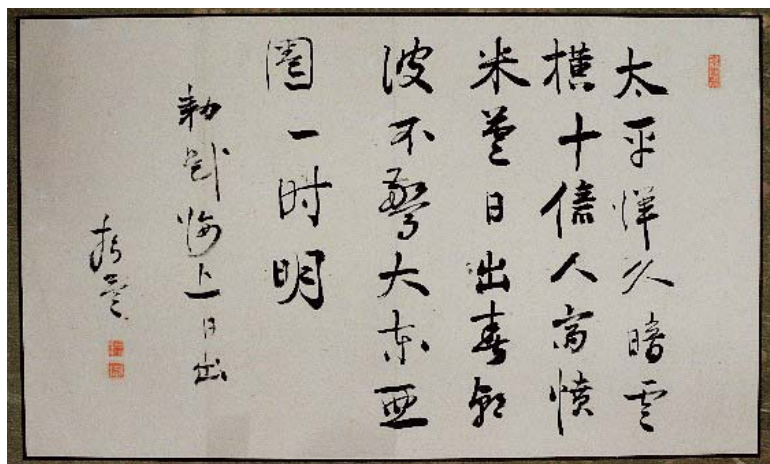 太平洋久暗雲
横十億人憤
米英日出春朝
波不驚大東亜
圏一時明
勅題海上日出